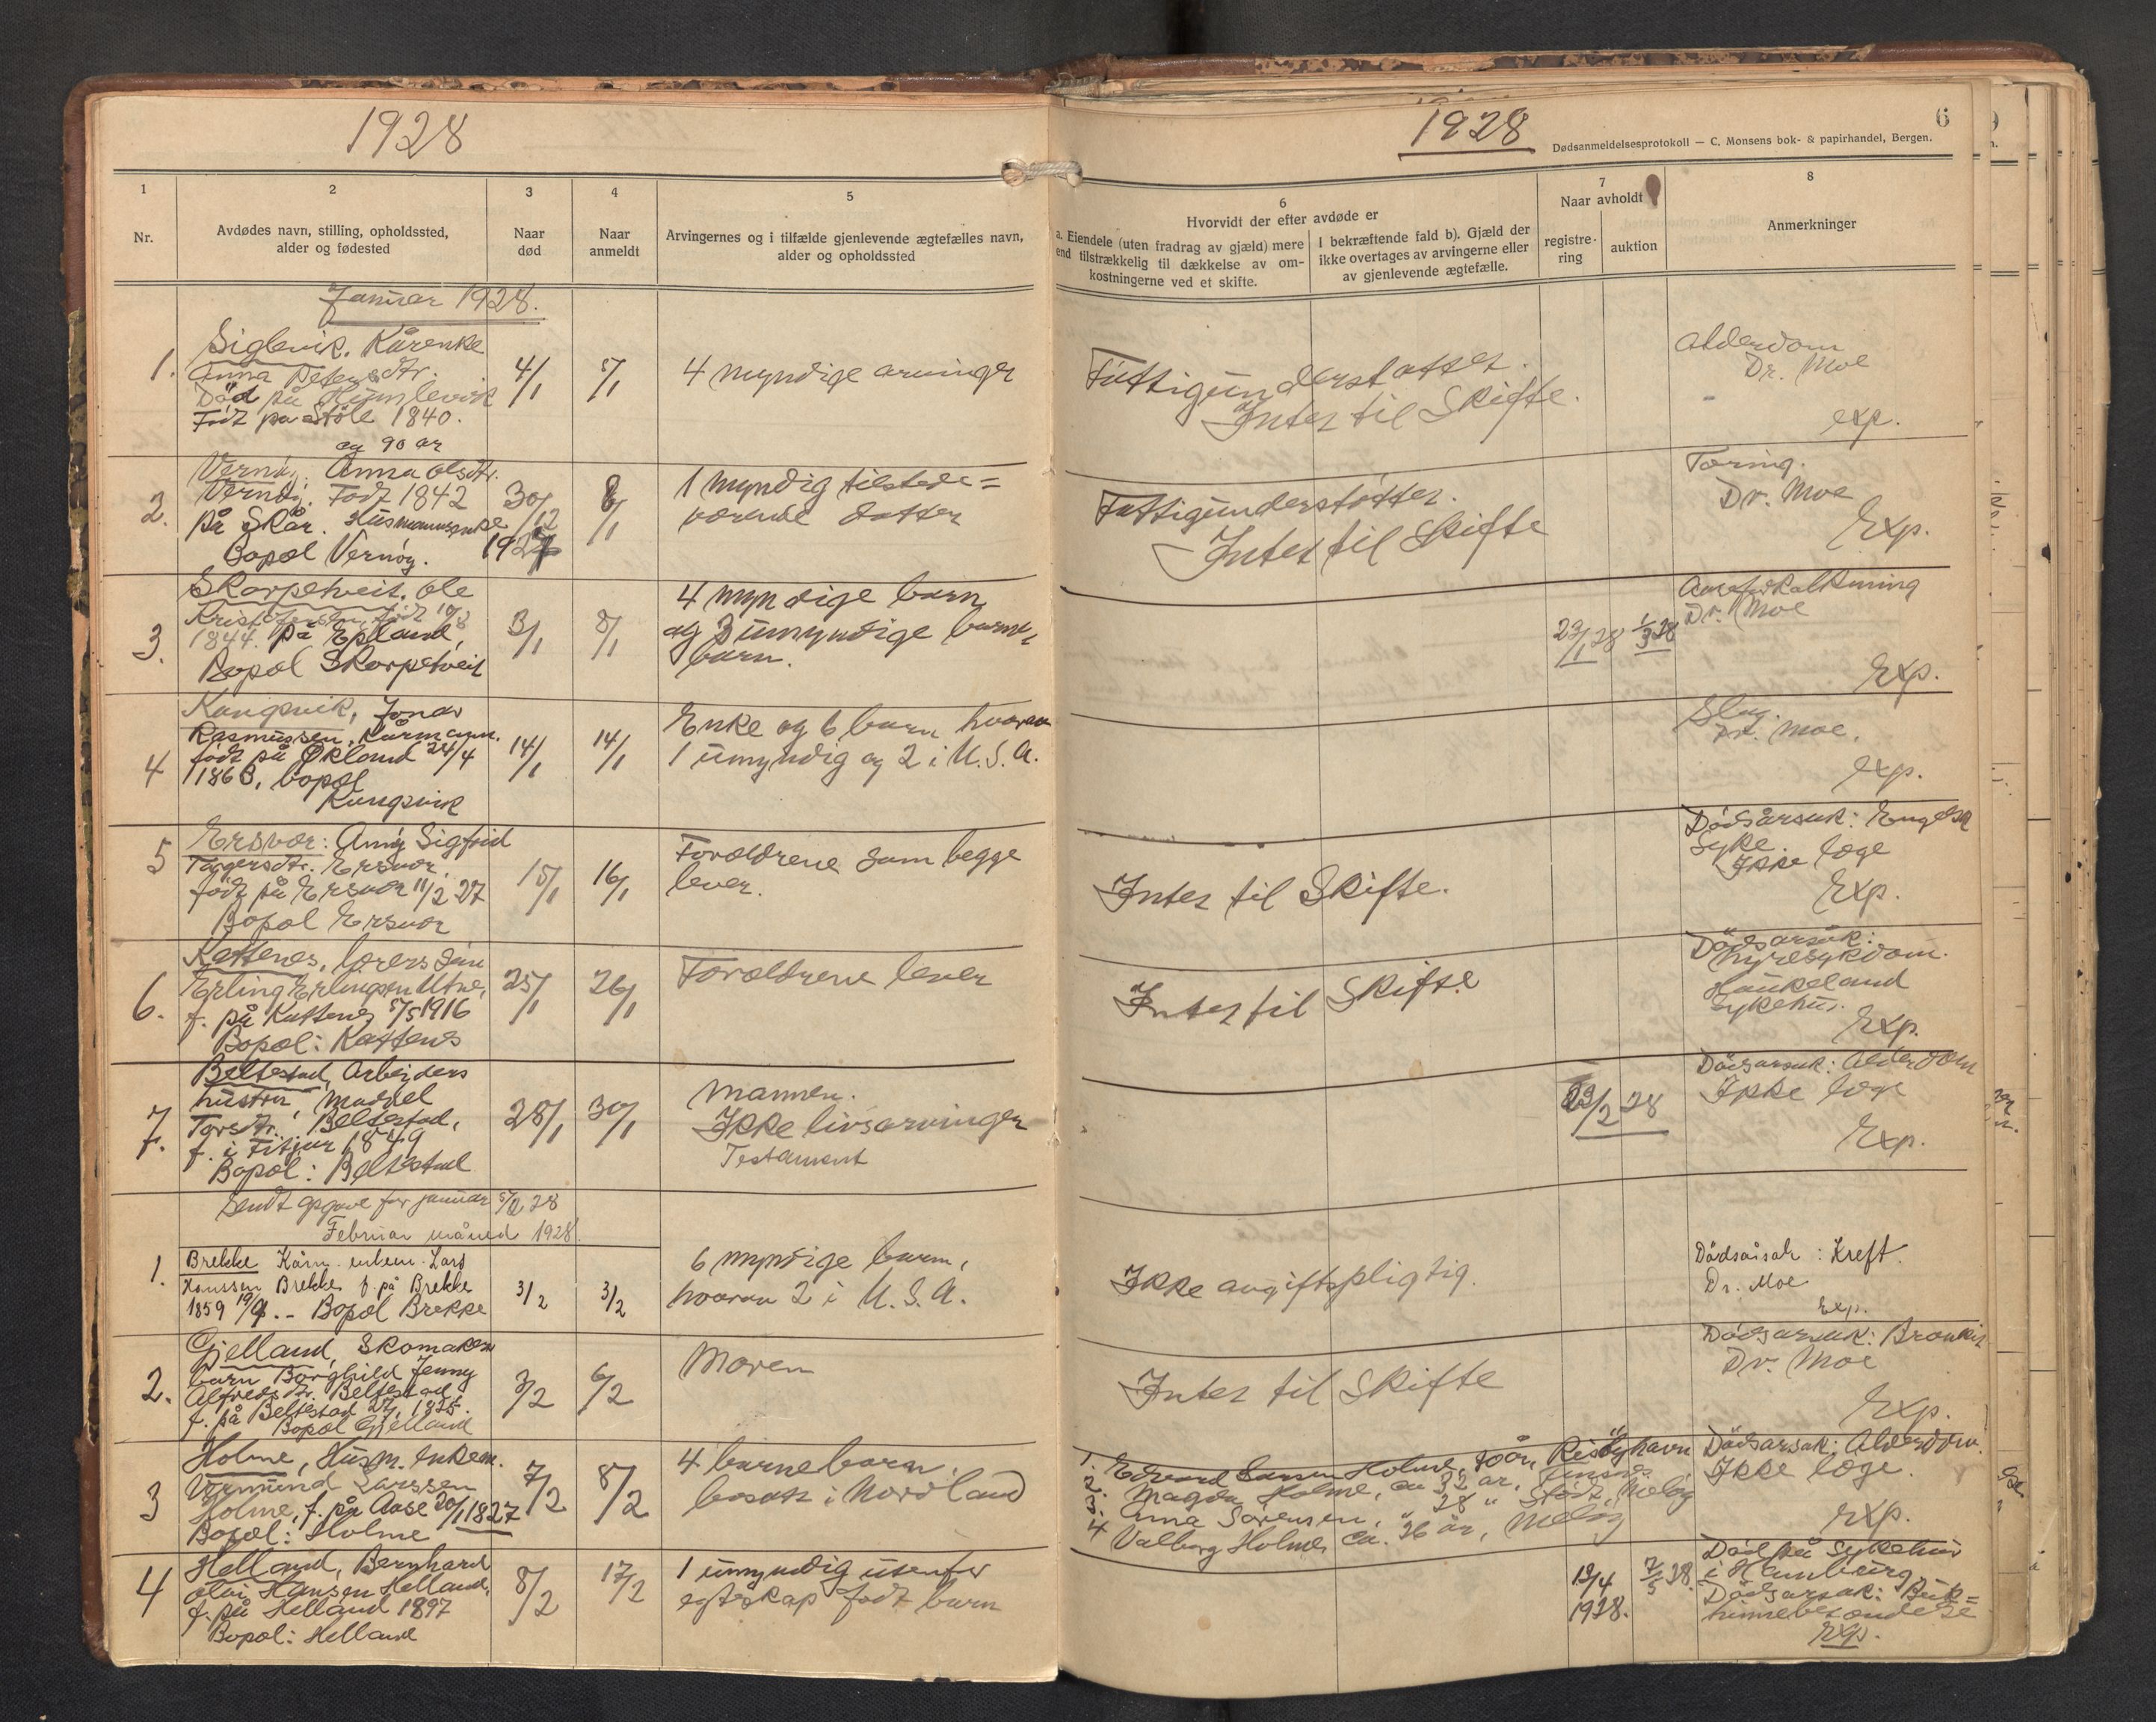 1928
1 2 3 4 5
Nr.
Avdødes navn, stilling, opholdssted,
alder og fødested
Naar
død
Naar
anmeldt
Arvingernes og i tilfælde gjenlevende ægtefælles navn,
alder og opholdssted
Januar 1928.
1. Siglevik, Kårenke
Anna Petersdtr.
Død på
Født på Støle 1840.
og 90 år
4/1
5/1
4 myndige arvinger
2. Vernøy, Anna Olsdtr.
Vernøy. Født 1842
på Skår. Husmannsenke
Bopæl Vernøy.
30/12
1927
8/1
1 myndig tilstede=
værende datter
3. Skarpetveit, Ole
født 10/8
1844. på Epland,
Bopæl Skarpetveit
3/1
8/1
4 myndige barn
og 3 umyndige barne-
barn.
4 Kangsvik, Jonas
Rasmussen, Kårmann.
født på Økland 24/4
1863, bopæl
Kangsvik
14/1
14/1
Enke og 6 barn hvorav
1 umyndig og 2 i U.S.A.
5 Ersvær: Anny Sigfrid
Torgersdtr. Ersvær,
født på Ersvær 11/2 27
Bopæl Ersvær
15/1
16/1
Forældrene som begge
lever.
6. Kattenes, lærers søn
Erling Erlingsen Utne,
f. på Kattenes 5/5 1916
Bopæl: Kattenes
25/1
26/1
Forældrene lever
7. Beltestad, Arbeiders
hustru,
Torsdtr. Beltestad,
f. i Fitjar 1849
Bopæl: Beltestad
28/1
30/1
Mannen.
Ikke livsarvinger
Testament
Sendt opgave for januar 5/2 28
Februar måned 1928.
1. Brekke Kårm. enkem. Lars
Hanssen Brekke f. på Brekke
1859 19/9. - Bopæl Brekke
3/2
3/2
6 myndige barn,
hvorav 2 i U.S.A.
2. Gjelland, Skomakers
barn Borghild Jenny
Alfredsdtr. Beltestad
f. på Beltestad
Bopæl Gjelland
3/2
6/2
Moren
3 Holme, Husm. Enkem.
Larssen
Holme, f. på Aase 20/1 1827
Bopæl: Holme
7/2
8/2
4 barnebarn,
bosatt i Nordland
4 Helland, Bernhard
Olai Hansen Helland,
f. på Helland 1897
Bopæl: Helland
8/2
17/2
1 umyndig utenfor
egteskap født barn
1928
6
Dødsanmeldelsesprotokoll — C. Monsens bok- & papirhandel, Bergen.
6
Hvorvidt der efter avdøde er
a. Eiendele (uten fradrag av gjæld) mere
end tilstrækkelig til dækkelse av om-
kostningerne ved et skifte.
I bekræftende fald b). Gjæld der
ikke overtages av arvingerne eller
av gjenlevende ægtefælle.
7
Naar avholdt
registre-
ring
auktion
8
Anmerkninger
Fattigunderstøttet.
Intet til Skifte.
Alderdom
Dr. Moe
exp.
Fattigunderstøttet.
Intet til Skifte
Tæring.
Dr. Moe
Exp.
23/1 28
1/3 28
Dr. Moe
Exp.
Slag.
Dr. Moe.
exp.
Intet til Skifte.
Dødsårsak: Engelsk
Syke.
Ikke læge
Exp.
Intet til Skifte
Dødsårsak:
Nyresykdom.
Haukeland
Sykehus.
Exp.
23/2 28
Dødsårsak: Alderdom
Ikke læge
Exp.
Ikke avgiftspligtig.
Dødsårsak: Kreft.
Dr. Moe
Exp.
Intet til Skifte
Dødsårsak:
Dr. Moe
Exp.
1. Edvard Larsen Holme, Risøyhavn
2. Magda Holme, ca 32 år,
3. Anna Sørensen, " 28 " Støtt, Meløy
4 Valborg Holme, ca. 26 år, Meløy
Dødsårsak: Alderdom.
Ikke læge.
Exp.
12/4
1928.
7/5 28.
Død på Sykehus
i Hamburg,
Dødsårsak: Buk=
hinnebetændelse
Exp.